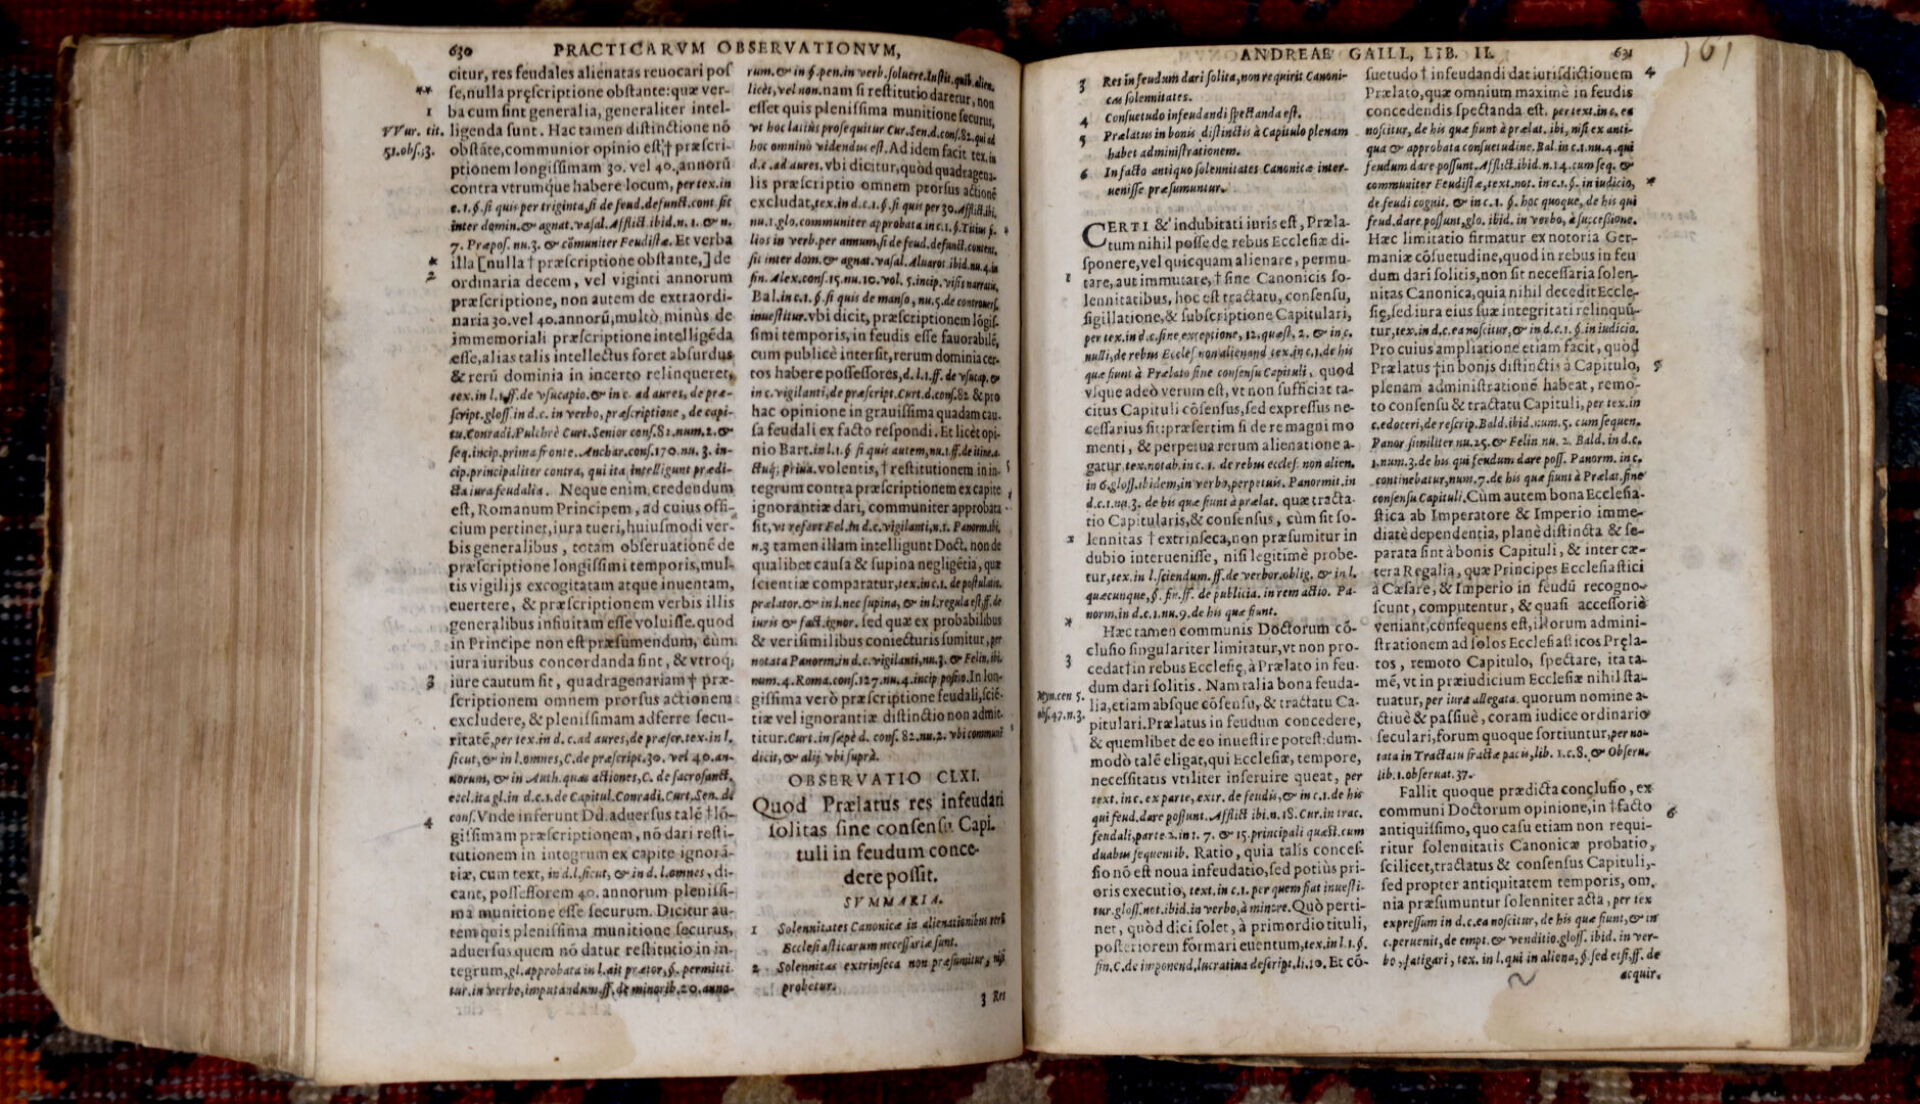 630 PRACTICARVM OBSERVATIONVM,
citur, res feudales alienatas reuocari pos
** se, nulla pręscriptione obstante: quæ ver-
1 ba cum sint generalia, generaliter intel-
VVur. tit. ligenda sunt. Hac tamen distinctione nō
51.obs.13. obstāte, communior opinio est, † præscri-
ptionem longissimam 30. vel 40. annorū
contra vtrumque habere locum, per tex. in
c. 1. §. si quis per triginta, si de feud. defunct. cont sit
inter domin. & agnat. vasal. Afflict. ibid. n. 1. & n.
7. Præpos. nu. 3. & cōmuniter Feudistæ. Et verba
* illa [nulla † præscriptione obstante,] de
2 ordinaria decem, vel viginti annorum
præscriptione, non autem de extraordi-
naria 30. vel 40. annorū, multò minùs de
immemoriali præscriptione intelligēda
esse, alias talis intellectus foret absurdus
& rerū dominia in incerto relinqueret,
tex. in l. 1. ff. de vsucapio. & in c. ad aures, de præ-
script. gloss. in d. c. in verbo, præscriptione, de capi-
tu. Conradi. Pulchrè Curt. Senior cons. 82. num. 2. &
seq. incip. prima fronte. Anchar. cons. 170. nu. 3. in-
cip. principaliter contra, qui ita intelligunt prædi-
cta iura feudalia. Neque enim credendum
est, Romanum Principem, ad cuius offi-
cium pertinet, iura tueri, huiusmodi ver-
bis generalibus, totam obseruationē de
præscriptione longissimi temporis, mul-
tis vigilijs excogitatam atque inuentam,
euertere, & præscriptionem verbis illis
generalibus infinitam esse voluisse. quod
in Principe non est præsumendum, cùm
iura iuribus concordanda sint, & vtroq;
3 iure cautum sit, quadragenariam † præ-
scriptionem omnem prorsus actionem
excludere, & plenissimam adferre secu-
ritatē, per tex. in d. c. ad aures, de præscr. tex. in l.
sicut, & in l. omnes, C. de præscript. 30. vel 40. an-
norum, & in Auth. quas actiones, C. de sacrosanct.
eccl. ita gl. in d. c. 1. de Capitul. Conradi. Curt. Sen. d.
cons. Vnde inferunt Dd. aduersus talē † lō-
4 gissimam præscriptionem, nō dari resti-
tutionem in integrum ex capite ignorā-
tiæ, cum text, in d. l. sicut, & in d. l. omnes, di-
cant, possessorem 40. annorum plenissi-
ma munitione esse securum. Dicitur au-
tem quis plenissima munitione securus,
aduersus quem nō datur restitutio in in-
tegrum, gl. approbata in l. ait prætor, §. permitti
tur. in verbo, imputandum. ff. de minorib. 20. anno-
rum. & in §. pen. in verb. soluere. Instit. quib. alien.
licèt, vel non. nam si restitutio daretur, non
esset quis plenissima munitione securus,
vt hoc latiùs prosequitur Cur. Sen. d. cons. 82. qui ad
hoc omninò videndus est. Ad idem facit tex. in
d. c. ad aures. vbi dicitur, quòd quadragena-
lis præscriptio omnem prorsus actionē
excludat, tex. in d. c. 1. §. si quis per 30. Afflict. ibi.
nu. 1. glo. communiter approbata in c. 1. §. Titius fi.
lios in verb. per annum, si de feud. defunct. content.
sit inter dom. & agnat. vasal. Aluarot. ibid. nu. 4. in
fin. Alex. cons. 15. nu. 10. vol. 5. incip. visis narratis,
Bal. in c. 1. §. si quis de manso, nu. 5. de controuers.
inuestitur. vbi dicit, præscriptionem lōgis-
simi temporis, in feudis esse fauorabilē,
cum publicè intersit, rerum dominia cer-
tos habere possessores, d. l. 1. ff. de vsucap. &
in c. vigilanti, de præscript. Curt. d. cons. 82 & pro
hac opinione in grauissima quadam cau-
sa feudali ex facto respondi. Et licèt opi-
nio Bart. in l. 1. § si quis autem, nu. 1. ff. de itine. a-
ctuq; priua. volentis, † restitutionem in in- 5
tegrum contra præscriptionem ex capite
ignorantiæ dari, communiter approbata
sit, vt refert Fel. in d. c. vigilanti, n. 1. Panorm. ibi,
n. 3 tamen illam intelligunt Doct. non de
qualibet causa & supina negligētia, quæ
scientiæ comparatur, tex. in c. 1. de postulat.
prælator. & in l. nec supina, & in l. regula est, ff. de
iuris & fact. ignor. sed quæ ex probabilibus
& verisimilibus coniecturis sumitur, per
notata Panorm. in d. c. vigilanti, nu. 3. & Felin. ibi.
num. 4. Roma. cons. 127. nu. 4. incip posito. In lon-
gissima verò præscriptione feudali, sciē-
tiæ vel ignorantiæ distinctio non admit-
titur. Curt. in sæpè d. cons. 82. nu. 2. vbi communē
dicit, & alij vbi suprà.
OBSERVATIO CLXI.
Quod Prælatus res infeudari
solitas sine consensu Capi-
tuli in feudum conce-
dere possit.
SVMMARIA.
1 Solennitates Canonicæ in alienationibus rerū
Ecclesiasticarum necessariæ sunt.
2 Solennitas extrinseca non præsumitur, nisi
probetur.
3 Res
ANDREAE GAILL, LIB. II. 631
161
3 Res in feudum dari solita, non requirit Canoni-
cas solennitates.
4 Consuetudo infeudandi spectanda est.
5 Prælatus in bonis distinctis à Capitulo plenam
habet administrationem.
6 In facto antiquo solennitates Canonicæ inter-
uenisse præsumuntur.
CERTI & indubitati iuris est, Præla-
tum nihil posse de rebus Ecclesiæ di-
sponere, vel quicquam alienare, permu-
1 tare, aut immutare, † sine Canonicis so-
lennitatibus, hoc est tractatu, consensu,
sigillatione, & subscriptione Capitulari,
per tex. in d. c. sine exceptione, 12. quæst. 2. & in c.
nulli, de rebus Eccles non alienand tex. in c. 1. de his
quæ fiunt à Prælato sine consensu Capituli, quod
vsque adeò verum est, vt non sufficiat ta-
citus Capituli cōsensus, sed expressus ne-
cessarius sit: præsertim si de re magni mo
menti, & perpetua rerum alienatione a-
gatur, tex. notab. in c. 1. de rebus eccles. non alien.
in 6. gloss. ibidem, in verbo, perpetuis. Panormit. in
d. c. 1. nu. 3. de his quæ fiunt à prælat. quæ tracta-
tio Capitularis, & consensus, cùm sit so-
2 lennitas † extrinseca, non præsumitur in
dubio interuenisse, nisi legitimè probe-
tur, tex. in l. sciendum. ff. de verbor. oblig. & in l.
quæcunque, §. fin. ff. de publicia. in rem actio. Pa-
norm. in d. c. 1. nu. 9. de his quæ fiunt.
* Hæc tamen communis Doctorum cō-
clusio singulariter limitatur, vt non pro-
3 cedat † in rebus Ecclesię, à Prælato in feu-
dum dari solitis. Nam talia bona feuda-
Myn. cen 5. lia, etiam absque cōsensu, & tractatu Ca-
obs. 47. n. 3. pitulari. Prælatus in feudum concedere,
& quemlibet de eo inuestire potest: dum-
modò talē eligat, qui Ecclesiæ, tempore,
necessitatis vtiliter inseruire queat, per
text. in c. ex parte, extr. de feudis, & in c. 1. de his
qui feud. dare possunt. Afflict ibi. n. 18. Cur. in trac.
feudali, parte 2. in 1. 7. & 15. principali quæst. cum
duabus sequentib. Ratio, quia talis conces-
sio nō est noua infeudatio, sed potiùs pri-
oris executio, text. in c. 1. per quem fiat inuesti-
tur. gloss. not. ibid. in verbo, à minore. Quò perti-
net, quòd dici solet, à primordio tituli,
posteriorem formari euentum, tex. in l. 1. §.
fin. C. de imponend. lucratiua descript. li. 10. Et cō-
suetudo † infeudandi dat iurisdictionem 4
Prælato, quæ omnium maximè in feudis
concedendis spectanda est. per text. in c. ea
noscitur, de his quæ fiunt à prælat. ibi, nisi ex anti-
qua & approbata consuetudine. Bal. in c. 1. nu. 4. qui
feudum dare possunt. Afflict. ibid. n. 14. cum seq. &
communiter Feudistæ, text. not. in c. 1. §. in iudicio, *
de feudi cognit. & in c. 1. §. hoc quoque, de his qui
feud. dare possunt, glo. ibid. in verbo, à successione.
Hæc limitatio firmatur ex notoria Ger-
maniæ cōsuetudine, quod in rebus in feu
dum dari solitis, non sit necessaria solen-
nitas Canonica, quia nihil decedit Eccle-
się, sed iura eius suæ integritati relinquū-
tur, tex. in d. c. ea noscitur, & in d. c. 1. §. in iudicio.
Pro cuius ampliatione etiam facit, quòd
Prælatus † in bonis distinctis à Capitulo, 5
plenam administrationē habeat, remo-
to consensu & tractatu Capituli, per tex. in
c. edoceri, de rescrip. Bald. ibid. num. 5. cum sequen.
Panor. similiter nu. 25. & Felin nu. 2. Bald. in d. c.
1. num. 3. de his qui feudum dare poss. Panorm. in c.
continebatur, num. 7. de his quæ fiunt à Prælat. sine
consensu Capituli. Cùm autem bona Ecclesia-
stica ab Imperatore & Imperio imme-
diatè dependentia, planè distincta & se-
parata sint à bonis Capituli, & inter cæ-
tera Regalia, quæ Principes Ecclesiastici
à Cæsare, & Imperio in feudū recogno-
scunt, computentur, & quasi accessoriè
veniant, consequens est, illorum admini-
strationem ad solos Ecclesiasticos Pręla-
tos, remoto Capitulo, spectare, ita ta-
mē, vt in præiudicium Ecclesiæ nihil sta-
tuatur, per iura allegata. quorum nomine a-
ctiuè & passiuè, coram iudice ordinario
seculari, forum quoque sortiuntur, per no-
tata in Tractatu fractæ pacis, lib. 1. c. 8. & Obseru.
lib. 1. obseruat. 37.
Fallit quoque prædicta conclusio, ex
communi Doctorum opinione, in † facto
antiquissimo, quo casu etiam non requi- 6
ritur solennitatis Canonicæ probatio,
scilicet, tractatus & consensus Capituli,
sed propter antiquitatem temporis, om-
nia præsumuntur solenniter acta, per tex
expressum in d. c. ea noscitur, de his quæ fiunt, & in
c. peruenit, de empt. & venditio. gloss. ibid. in ver-
bo, fatigari, tex. in l. qui in aliena, §. sed etsi, ff. de
acquir.